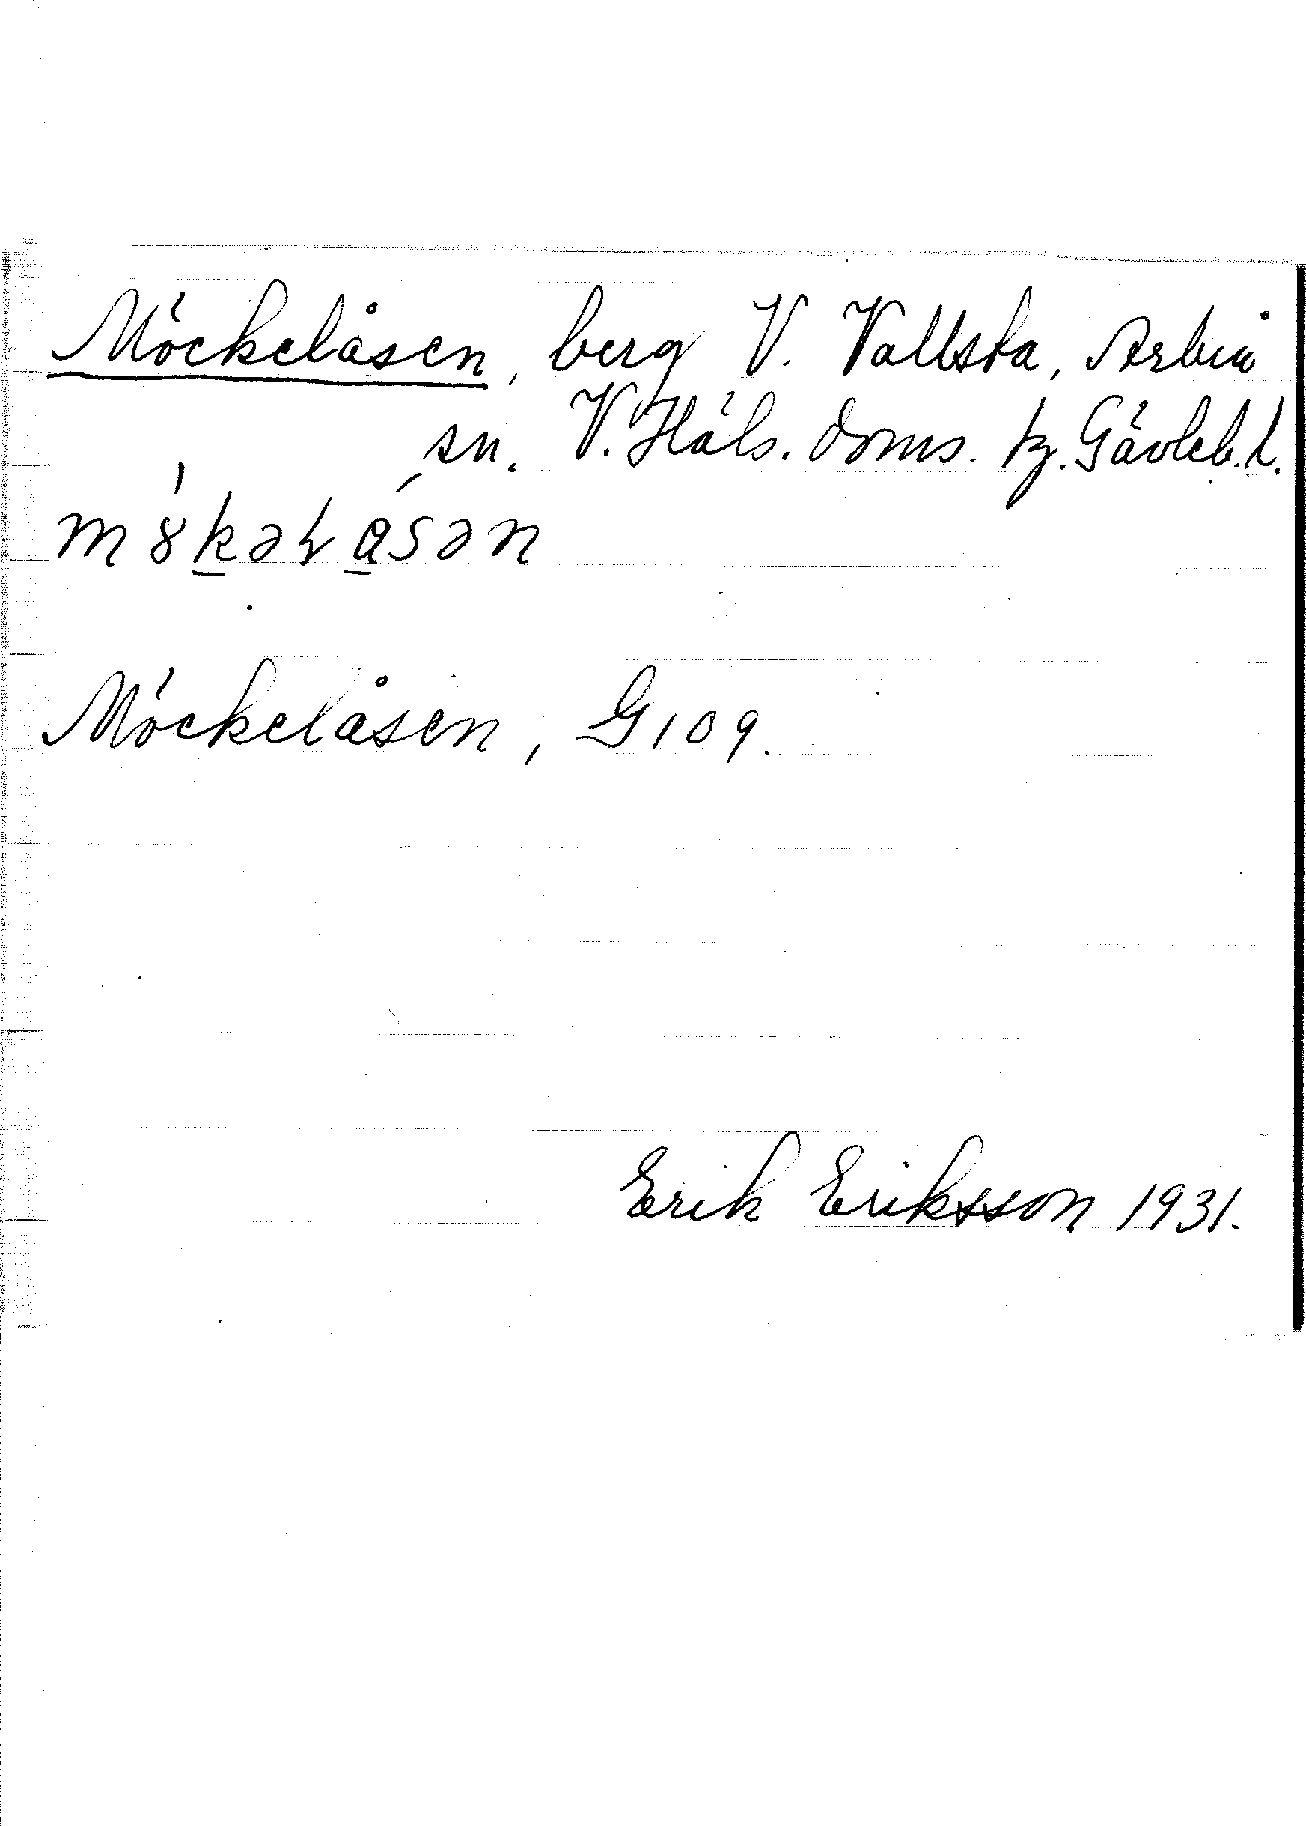 Möckelåsen, berg V. Vallsta, Arbrå
sn. V. Häls. doms. tg. Gävleb. l.
Möckelåsen, G 109.
Erik Eriksson 1931.